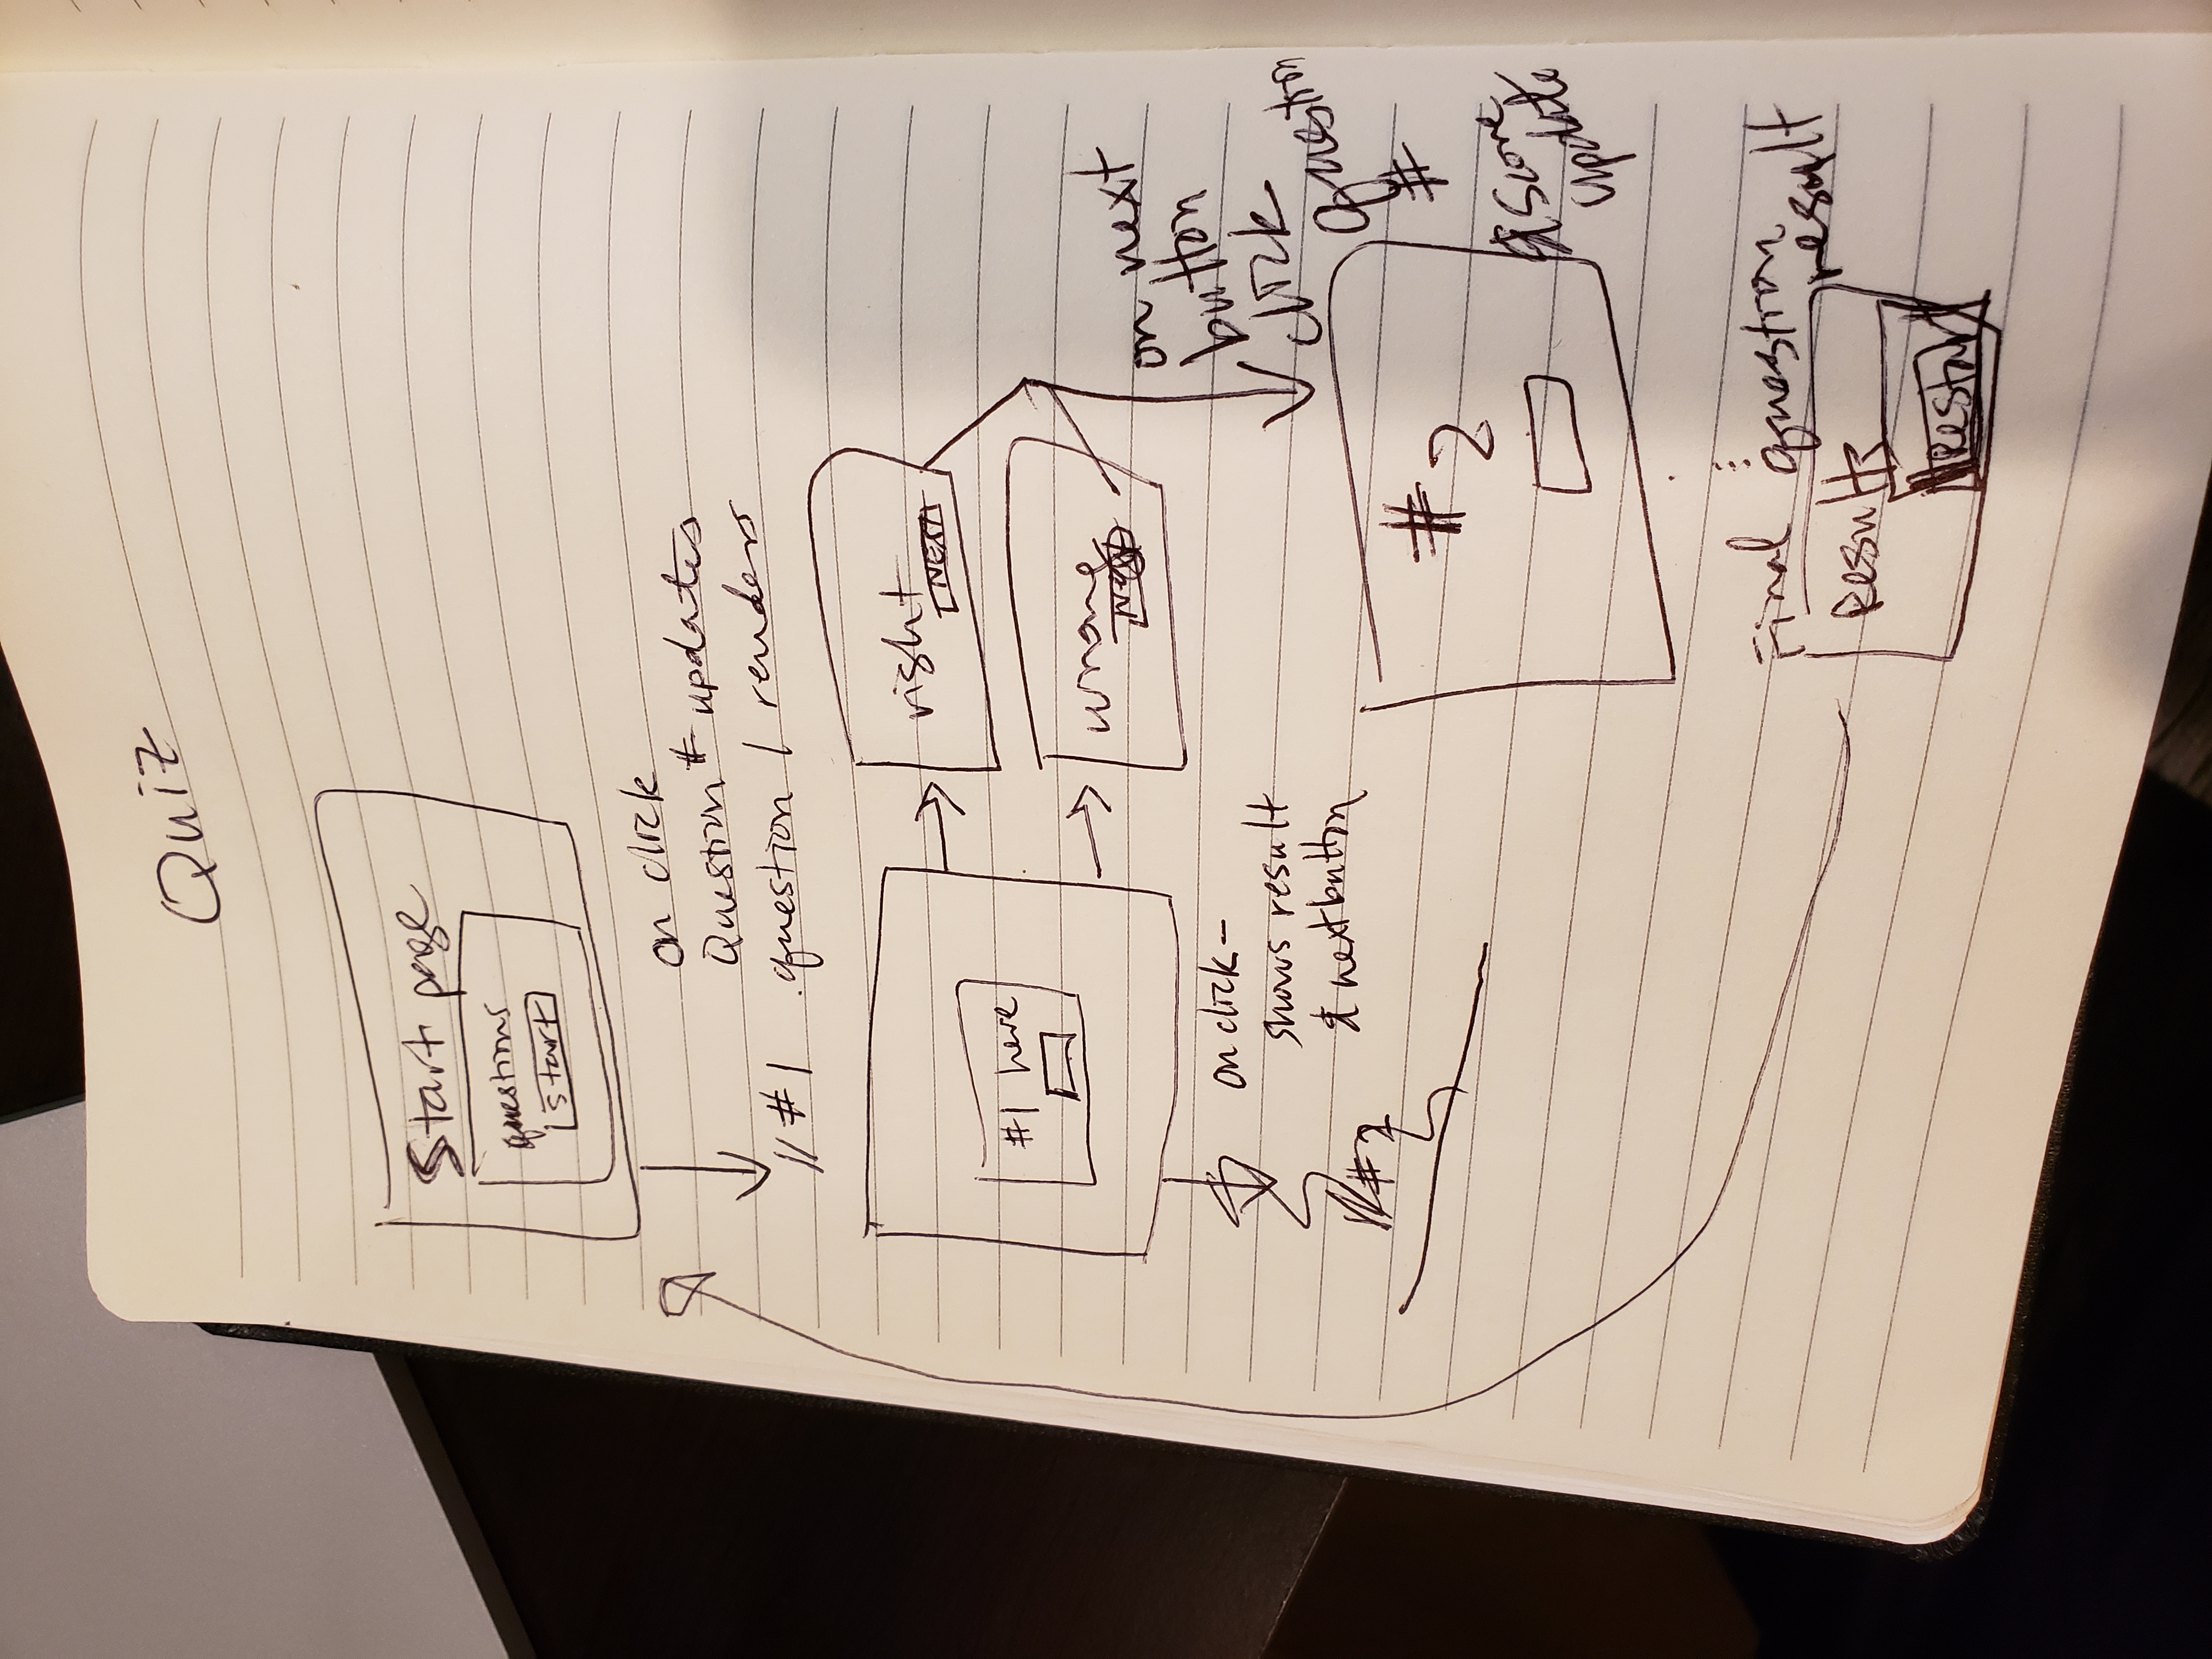 Quiz
Start page
questions
start
on click
Question # updates
//#1 question 1 renders
right
NEXT
#1 here
wrong
Next
on click-
shows result
& next button
//#2
on next
button
click
question
#
& score
update
#2
Final question
result
Results
Restart